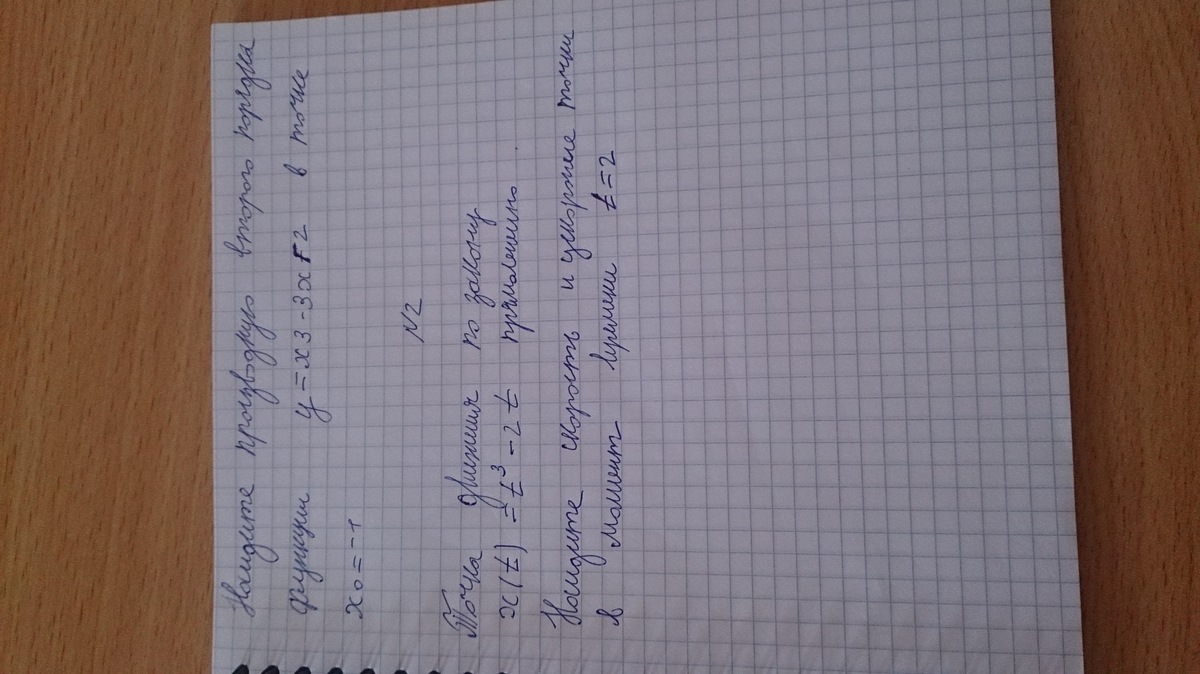 Найдите производную второго порядка
функции y=x3-3x+2 в точке
x0=-1
N2
Точка движется по закону
x(t)=t³-2t прямолинейно.
Найдите скорость и ускорение точки
в момент времени t=2